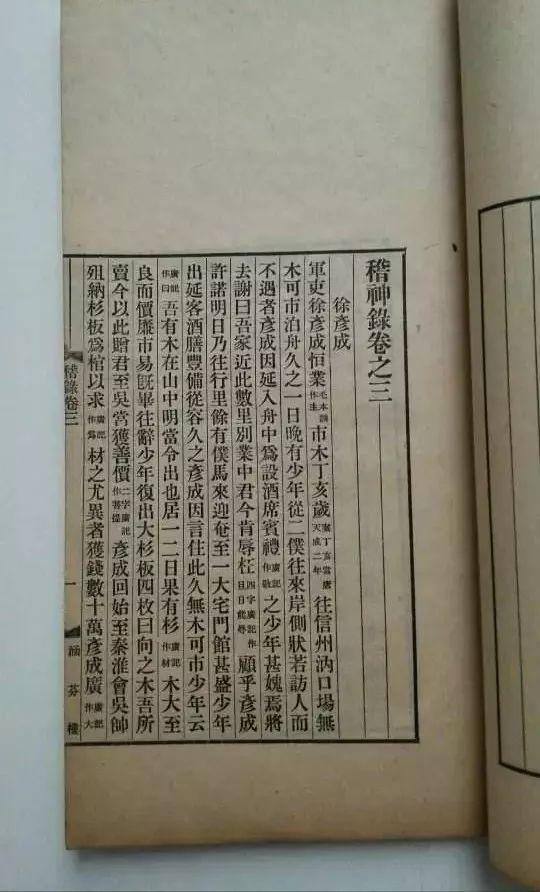 稽神錄卷之三
徐彥成
軍吏徐彥成恒業毛本誤作主市木丁亥歲案丁亥當唐天成二年往信州汭口場無
木可市泊舟久之一日晚有少年從二僕往來岸側狀若訪人而
不遇者彥成因延入舟中爲設酒席賓禮廣記作敬之少年甚媿焉將
去謝曰吾家近此數里別業中君今肯辱枉四字廣記作且日能辱顧乎彥成
許諾明日乃往行里餘有僕馬來迎奄至一大宅門館甚盛少年
出延客酒膳豐備從容久之彥成因言住此久無木可市少年云
廣記作曰吾有木在山中明當令出也居一二日果有杉廣記作材木大至
良而價廉市易旣畢往辭少年復出大杉板四枚曰向之木吾所
賣今以此贈君至吳當獲善價二字廣記作菩提彥成回始至秦淮會吳帥
殂納杉板爲棺以求廣記作爲材之尤異者獲錢數十萬彥成廣廣記作大
稽錄卷三
一
涵芬樓